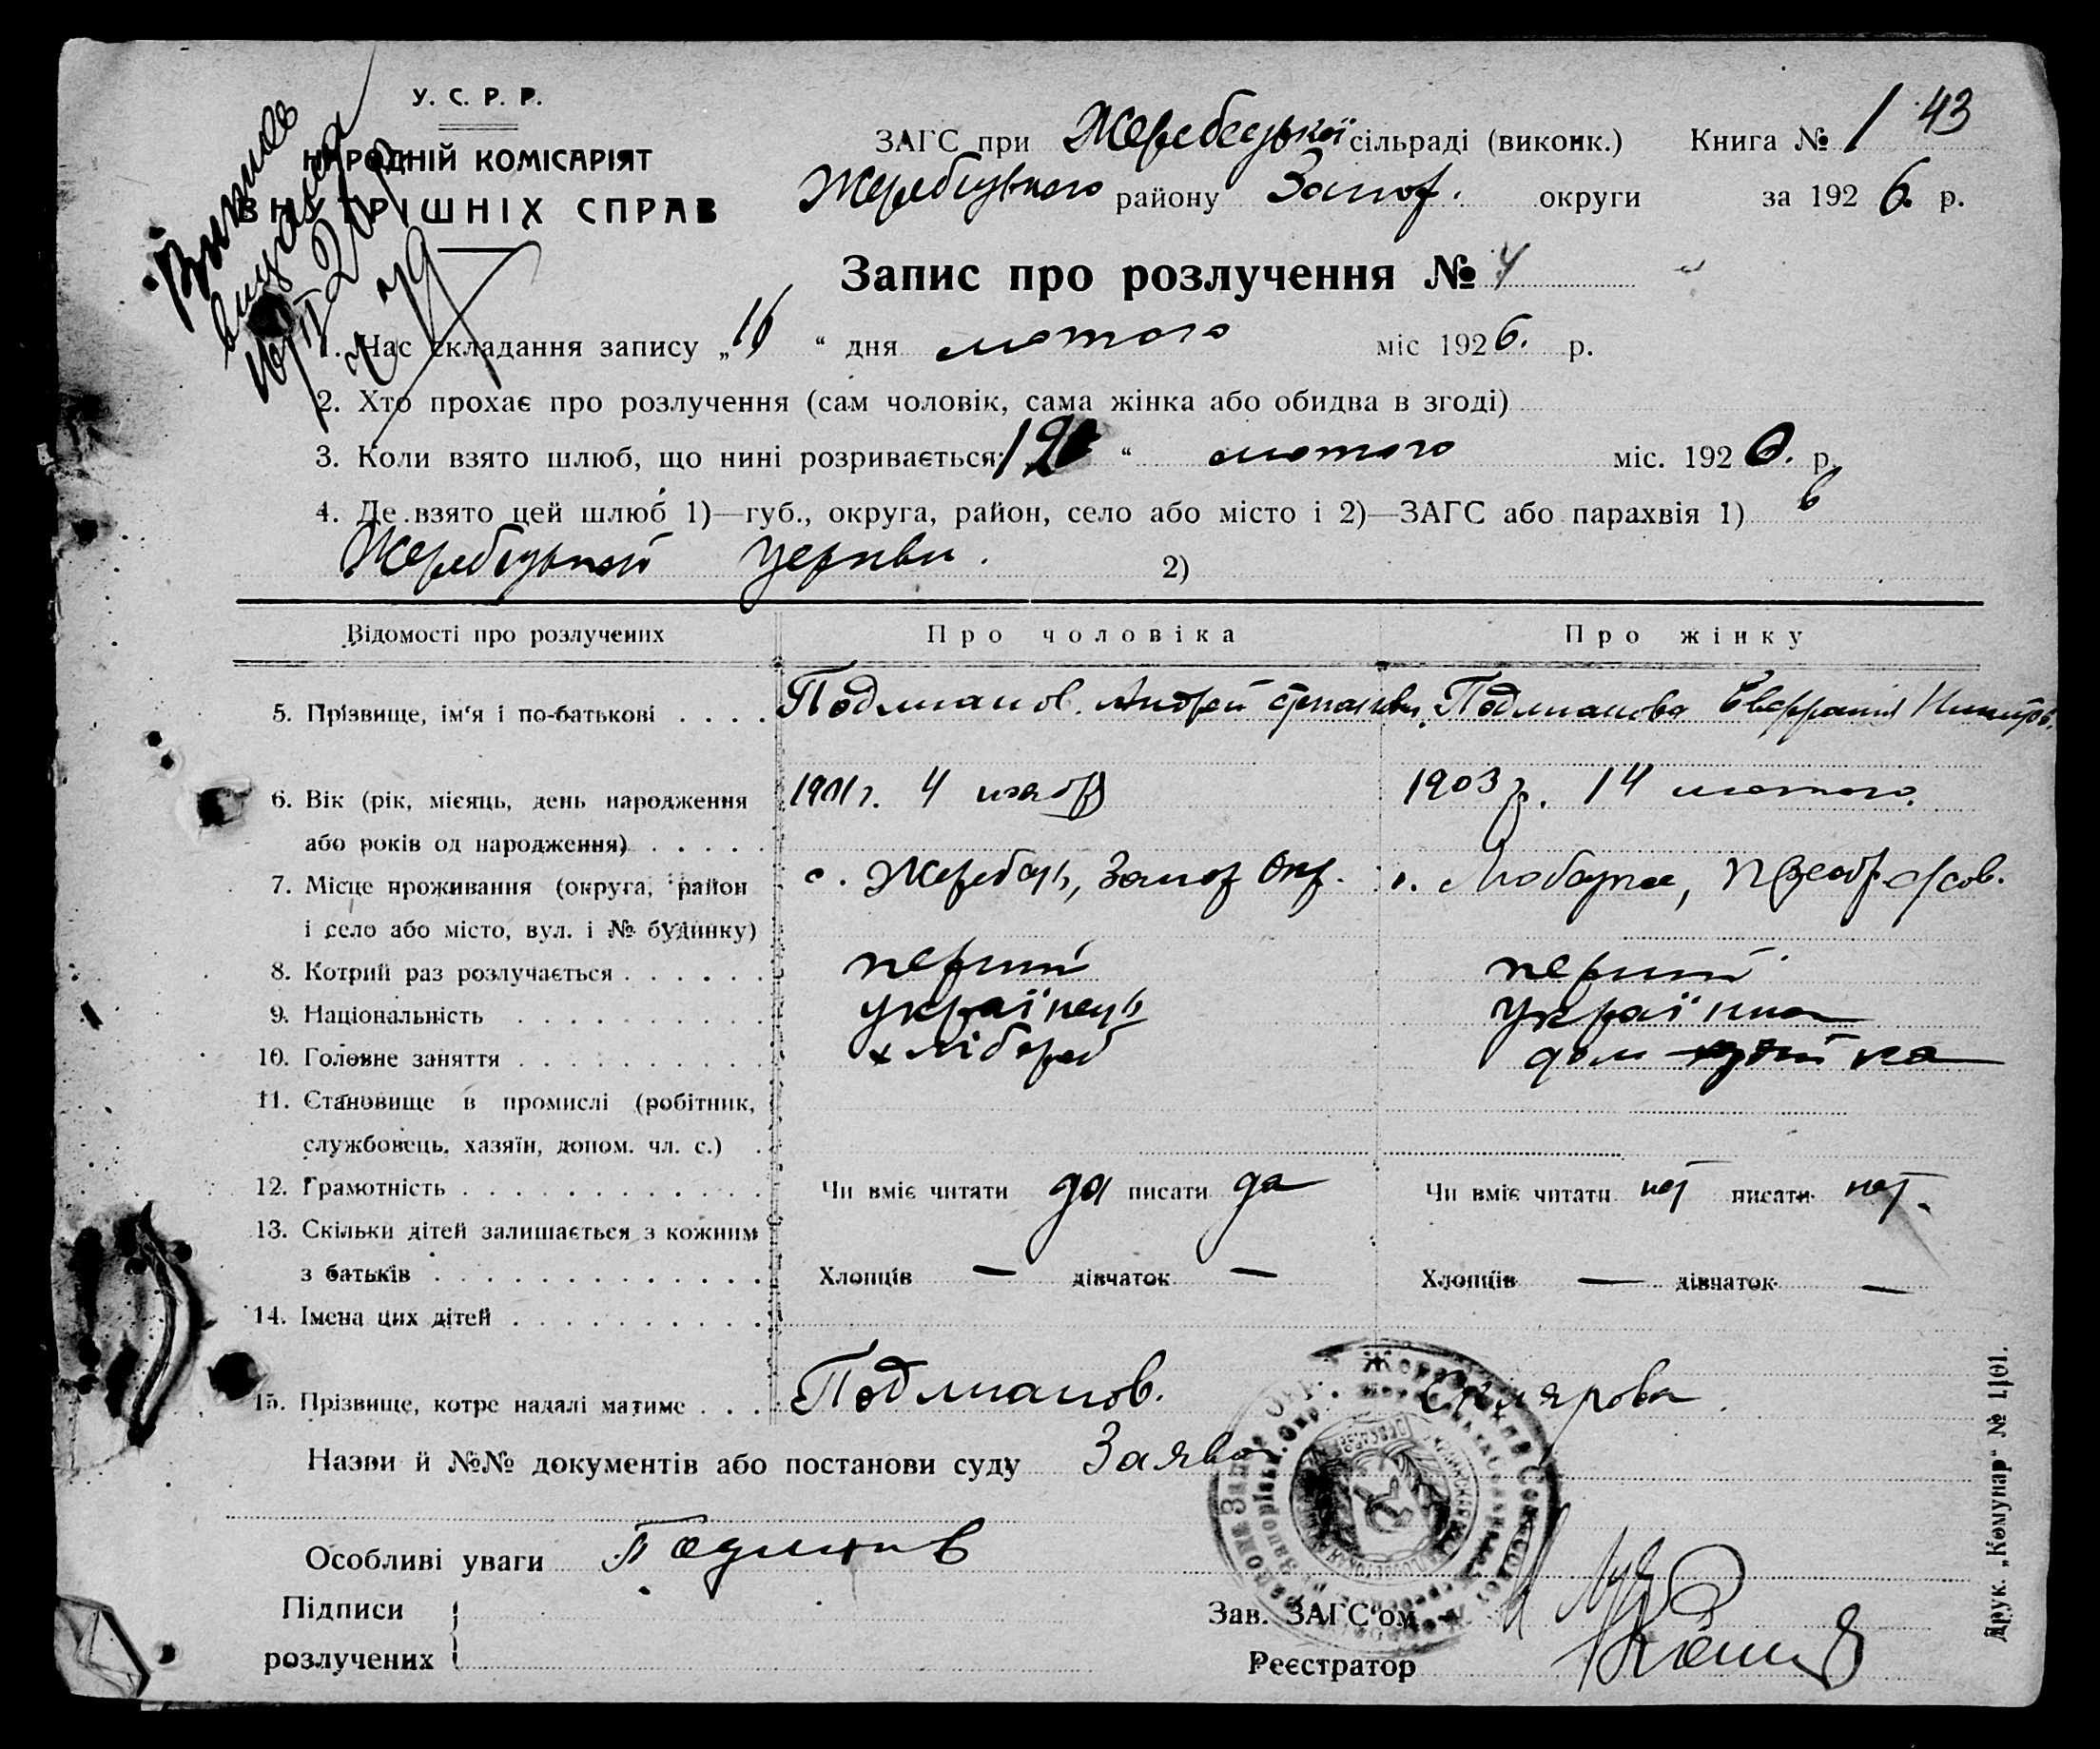 У. С. Р. Р.
НАРОДНІЙ КОМІСАРІЯТ
ВНУТРІШНІХ СПРАВ
Випись
видана
ЗАГС при Жеребецької сільраді (виконк.) Книга № 1 43
Жеребецького району Запор. округи за 1926 р.
Запис про розлучення № 4
1. Час складання запису „16“ дня лютого міс 1926. р.
2. Хто прохає про розлучення (сам чоловік, сама жінка або обидва в згоді)
3. Коли взято шлюб, що нині розривається: “ лютого міс. 192 р.
4. Де взято цей шлюб 1)—губ., округа, район, село або місто і 2)—ЗАГС або парахвія 1) в
Жеребецькой церкви. 2)
Відомості про розлучених Про чоловіка Про жінку
5. Прізвище, ім‘я і по-батькові . . . . Подлианов. Андрей Степанов. Подлианова Евфрания Никитов.
6. Вік (рік, місяць, день народження 1901 г. 4 1903 р. 14 лютого.
або років од народження) . . . . .
7. Місце проживання (округа, район с. Жеребець, Запор Окр. с. Любарка, Преобр.
і село або місто, вул. і № будинку)
8. Котрий раз розлучається . . . . . . перший перший
9. Національність . . . . . . . . . . українець українка
10. Головне заняття . . . . . . . . . . хлібороб дом
11. Становище в промислі (робітник,
службовець, хазяїн, допом. чл. с.) .
12. Грамотність . . . . . . . . . . . . Чи вміє читати да писати да Чи вміє читати нет писати нет.
13. Скільки дітей залишається з кожним
з батьків . . . . . . . . . . . . . Хлопців — дівчаток — Хлопців — дівчаток —
14. Імена цих дітей . . . . . . . . . .
15. Прізвище, котре надалі матиме . . . . Подлианов. Склярова.
Назви й №№ документів або постанови суду Заява
Особливі уваги
Підписи
розлучених
Зав. ЗАГС‘ом
Реєстратор
Друк. „Комунар“ № 1101.